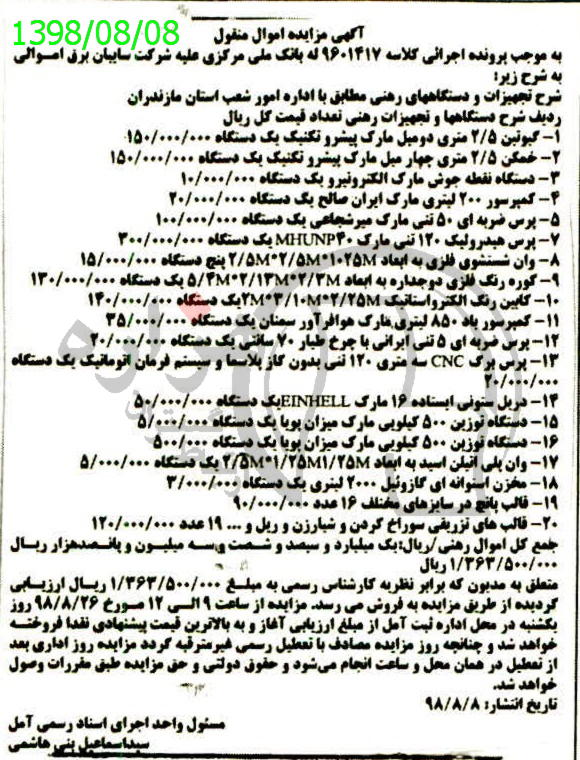 1398/08/08
آگهی مزایده اموال منقول
به موجب پرونده اجرائی کلاسه ۹۶۰۱۴۱۷ له بانک ملی مرکزی علیه شرکت سایبان برق اموالی
به شرح زیر:
شرح تجهیزات و دستگاههای رهنی مطابق با اداره امور شعب استان مازندران
ردیف شرح دستگاهها و تجهیزات رهنی تعداد قیمت کل ریال
۱- گیوتین ۲/۵ متری دومیل مارک پیشرو تکنیک یک دستگاه ۱۵۰/۰۰۰/۰۰۰
۲- خمکن ۲/۵ متری چهار میل مارک پیشرو تکنیک یک دستگاه ۱۵۰/۰۰۰/۰۰۰
۳- دستگاه نقطه جوش مارک الکترونیرو یک دستگاه ۱۰/۰۰۰/۰۰۰
۴- کمپرسور ۲۰۰ لیتری مارک ایران صالح یک دستگاه ۲۰/۰۰۰/۰۰۰
۵- پرس ضربه ای ۵۰ تنی مارک میرشجاعی یک دستگاه ۱۰۰/۰۰۰/۰۰۰
۷- پرس هیدرولیک ۱۲۰ تنی مارک MHUNP۴۰ یک دستگاه ۳۰۰/۰۰۰/۰۰۰
۸- وان شستشوی فلزی به ابعاد ۲/۵M*۲/۵M*۱۰۲۵M پنج دستگاه ۱۵/۰۰۰/۰۰۰
۹- کوره رنگ فلزی دوجداره به ابعاد ۵/۴M*۲/۱۳M*۲/۳M یک دستگاه ۱۳۰/۰۰۰/۰۰۰
۱۰- کابین رنگ الکترواستاتیک ۲M*۳/۱۰M*۲/۲۵Mیک دستگاه ۱۴۰/۰۰۰/۰۰۰
۱۱- کمپرسور باد ۸۵۰ لیتری مارک هوافرآور سمنان یک دستگاه ۳۵/۰۰۰/۰۰۰
۱۲- پرس ضربه ای ۵ تنی ایرانی با چرخ طیار ۷۰ سانتی یک دستگاه ۲۰/۰۰۰/۰۰۰
۱۳- پرس برک CNC سه متری ۱۲۰ تنی بدون گاز پلاسما و سیستم فرمان اتوماتیک یک دستگاه
۲۰/۰۰۰/۰۰۰
۱۴- دریل ستونی ایستاده ۱۶ مارک EINHELLیک دستگاه ۵۰/۰۰۰/۰۰۰
۱۵- دستگاه توزین ۵۰۰ کیلویی مارک میزان پویا یک دستگاه ۵/۰۰۰/۰۰۰
۱۶- دستگاه توزین ۵۰۰ کیلویی مارک میزان پویا یک دستگاه ۵۰۰/۰۰۰
۱۷- وان پلی اتیلن اسید به ابعاد ۲/۵M*۱/۲۵M۱/۲۵M یک دستگاه ۵/۰۰۰/۰۰۰
۱۸- مخزن استوانه ای گازوئیل ۲۰۰۰ لیتری یک دستگاه ۳/۰۰۰/۰۰۰
۱۹- قالب پانچ در سایزهای مختلف ۱۶ عدد ۹۰/۰۰۰/۰۰۰
۲۰- قالب های تزریقی سوراخ کردن و شیارزن و ریل و ... ۱۹ عدد ۱۲۰/۰۰۰/۰۰۰
جمع کل اموال رهنی/ریال:یک میلیارد و سیصد و شصت و سه میلیون و پانصدهزار ریال
۱/۳۶۳/۵۰۰/۰۰۰ ریال
متعلق به مدیون که برابر نظریه کارشناس رسمی به مبلغ ۱/۳۶۳/۵۰۰/۰۰۰ ریسال ارزیابی
گردیده از طریق مزایده به فروش می رسد. مزایده از ساعت ۹ الی ۱۲ مورخ ۹۸/۸/۲۶ روز
یکشنبه در محل اداره ثبت آمل از مبلغ ارزیابی آغاز و به بالاترین قیمت پیشنهادی نقدا فروخته
خواهد شد و چنانچه روز مزایده مصادف با تعطیل رسمی غیرمترقبه گردد مزایده روز اداری بعد
از تعطیل در همان محل و ساعت انجام می‌شود و حقوق دولتی و حق مزایده طبق مقررات وصول
خواهد شد.
تاریخ انتشار: ۹۸/۸/۸
مسئول واحد اجرای اسناد رسمی آمل
سیداسماعیل بنی هاشمی